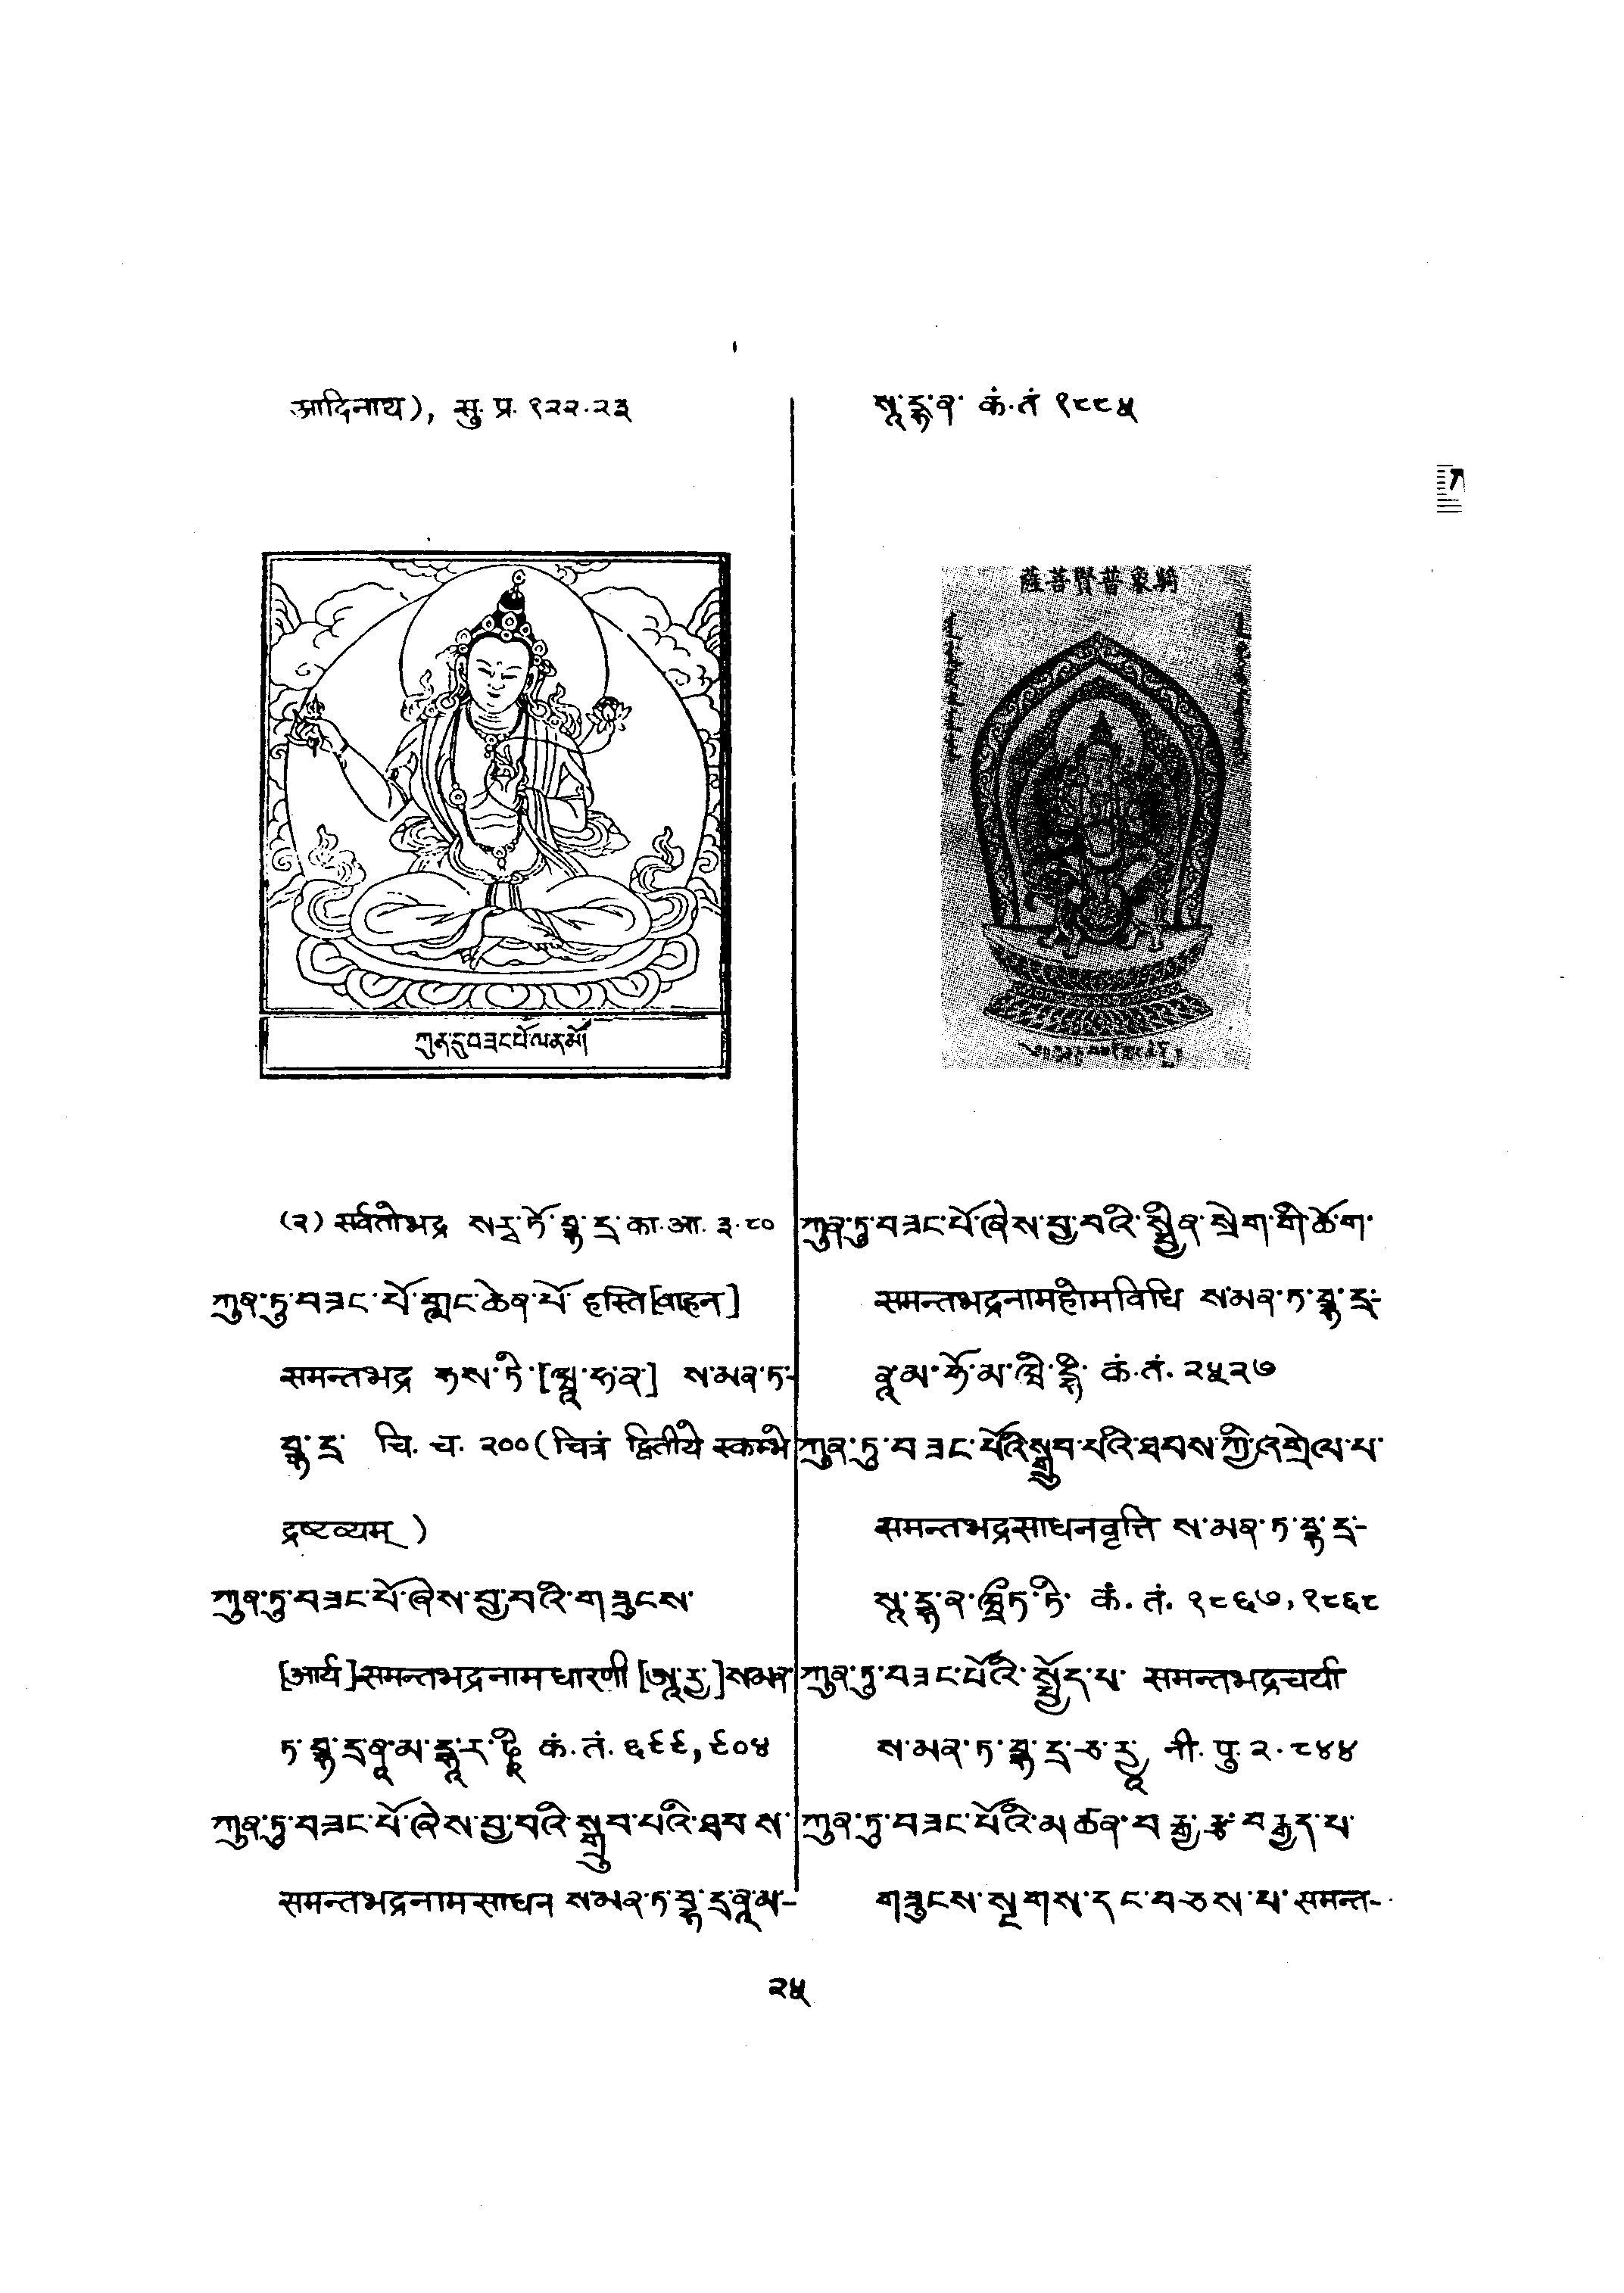 आदिनाथ), सु. प्र. १२२.२३
(२) सर्वतोभद्र ས་རྦ་ཏོ་བྷ་དྲ་ का. आ. ३.८०
ཀུན་ཏུ་བཟང་པོ་གླང་ཆེན་པོ་ हस्ति[वाहन]
समन्तभद्र ཧས་ཏི་[ཝཱ་ཧ་ན་] ས་མན་ཏ-
བྷ་དྲ་ चि. च. २०० (चित्रं द्वितीये स्कम्भे
द्रष्टव्यम्)
ཀུན་ཏུ་བཟང་པོ་ཞེས་བྱ་བའི་གཟུངས་
[आर्य]समन्तभद्रनामधारणी [ཨཱ་རྱ་]ས་མན་
ཏ་བྷ་དྲ་ནཱ་མ་དྷཱ་ར་ཎཱི་ कं. तं. ६९९, ९०४
ཀུན་ཏུ་བཟང་པོ་ཞེས་བྱ་བའི་སྒྲུབ་པའི་ཐབས་
समन्तभद्रनामसाधन ས་མན་ཏ་བྷ་དྲ་ནཱ་མ-
སཱ་དྷ་ན་ कं. तं १८८५
ཀུན་ཏུ་བཟང་པོ་ཞེས་བྱ་བའི་སྦྱིན་སྲེག་གི་ཆོ་ག་
समन्तभद्रनामहोमविधि ས་མན་ཏ་བྷ་དྲ-
ནཱ་མ་ཧོ་མ་ཝི་དྷི་ कं. तं. २५२७
ཀུན་ཏུ་བཟང་པོའི་སྒྲུབ་པའི་ཐབས་ཀྱི་འགྲེལ་པ་
समन्तभद्रसाधनवृत्ति ས་མན་ཏ་བྷ་དྲ-
སཱ་དྷ་ན་ཝྲྀཏ་ཏི་ कं. तं. १८६७, १८६८
ཀུན་ཏུ་བཟང་པོའི་སྤྱོད་པ་ समन्तभद्रचर्या
ས་མན་ཏ་བྷ་དྲ་ཙ་རྱཱ་ नी. पु. २.८४४
ཀུན་ཏུ་བཟང་པོའི་མཚན་བརྒྱ་རྩ་བརྒྱད་པ་
གཟུངས་སྔགས་དང་བཅས་པ་ समन्त-
薩菩賢普象騎
ཀུན་ཏུ་བཟང་པོ་ལ་ན་མོ།
२५